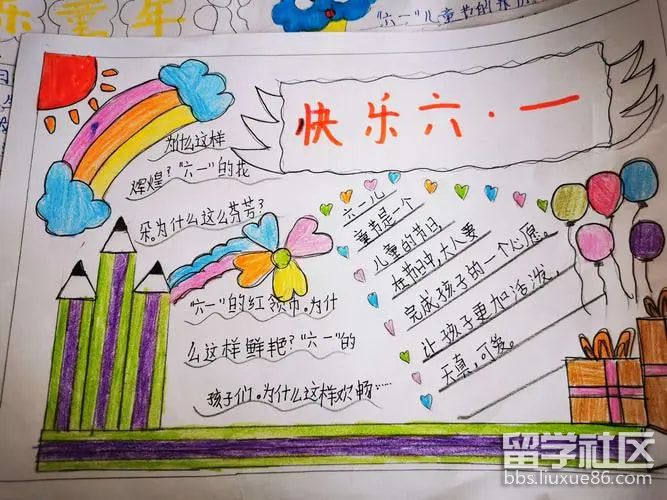 乐童年
"六一"儿童节的来历
快乐六·一
为什么这样
辉煌？"六一"的花
朵。为什么这么芬芳？
"六一"的红领巾。为什
么这样鲜艳？"六一"的
孩子们。为什么这样欢畅……
六一儿
童节是一个
儿童的节日
在节日中,大人要
完成孩子的一个心愿。
让孩子更加活泼，
天真,可爱。
留学社区
bbs.liuxue86.com